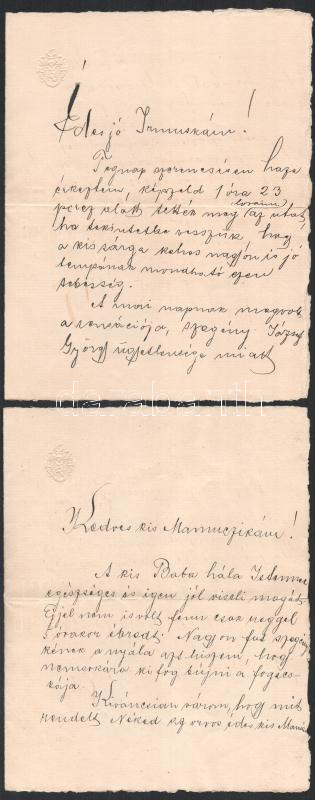 Édes jó Irmuskám!
Tegnap szerencsésen haza
érkeztem, képzeld 1 óra 23
lovaim
percz alatt tették meg az utat,
ha tekintetbe vesszük, hogy
a kis sárga kehes nagyon is jó
tempónak mondható ezen
sebesség.
A mai napnak megvolt
a senzációja, szegény József
György ügyetlensége miatt
darabanth
Kedves kis Mamuczikám!
A kis Baba hála Istennek
egészséges és igen jól viseli magát.
Éjjel nem is volt fenn csak reggel
órakor ébredt. Nagyon foly szegény
kének a nyála azt hiszem, hogy
nemsokára ki fog bújni a fogacs-
kája.
Kíváncsian várom, hogy mit
rendelt Néked az orvos édes kis Mamá